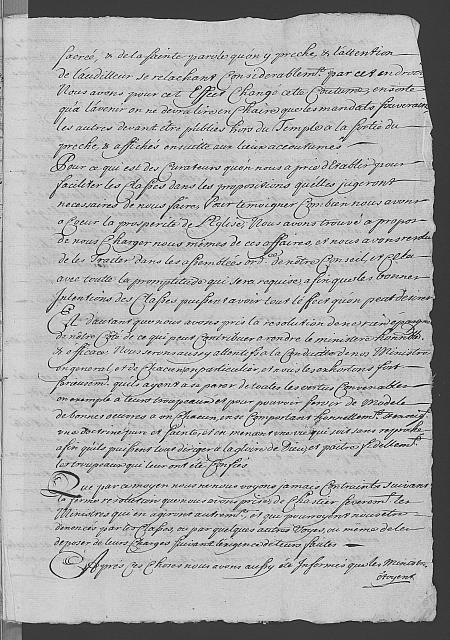 sacré, & de la sainte parole qu'on y preche, & l'attention
de l'auditeur se relachant Considerablem.t par cet endroit
Nous avons pour cet Effect Changé cette Coutume, en sorte
qu'a l'avenir on ne devra lire en Chaire que les mandats souverains
les autres devant étre publiés hors du Temple a la sortie du
preche, & affichés ensuitte aux lieux accoutumés
Pour ce qui est des Curateurs qu'on nous a prié d'Etablir pour
faciliter les Classes dans les propositions qu'elles jugeront
necessaires de nous faire, Pour temoigner Combien nous avons
a Coeur la prosperité de l'Eglise, Nous avons trouvé a propos
de nous Charger nous mémes de ces affaires, et nous avons resolu
de les Traiter dans les assemblées ord.res de nôtre Conseil, et cela
avec toutte la promptitude qui sera requise, afin que les bonnes
Intentions des Classes puissent avoir tout l'effect qu'on peut desirer
Et d'autant que nous avons pris la resolution de ne rien epargner
de nôtre Coté de ce qui peut contribuer a rendre le ministere honnorable
& efficace, Nous serons aussy attentifs a la Conduitte de nos Ministres
en general et de Chacun en particulier, et nous les exhortons fort
serieusem.t qu'ils ayent a se parer de toutes les vertus Convenables
en exemple a leurs troupeaux et pour pouvoir servir de Modele
de bonnes oeuvres a un Chacun, en se Comportant honnestement, enseignant
une doctrine pure et sainte, et en menant une vie qui soit sans reproche
afin qu'ils puissent tout diriger a la gloire de Dieu, et paitre fidellem.t
les troupeaux qui leur ont été Confiés
Que par ce moyen nous ne nous voyons jamais Contraints suivant
la ferme resolution que nous avons prise, de Chastier severem.t les
Ministres qui en agiront autrem.t, et qui pourroyent nous étre
denoncés par les Classes, ou par quelques autres Voyes, ou méme de les
deposer de leurs Charges suivant l'exigence de leurs fautes
Après ces Choses nous avons aussy été Informés que les Ministres
étoyent